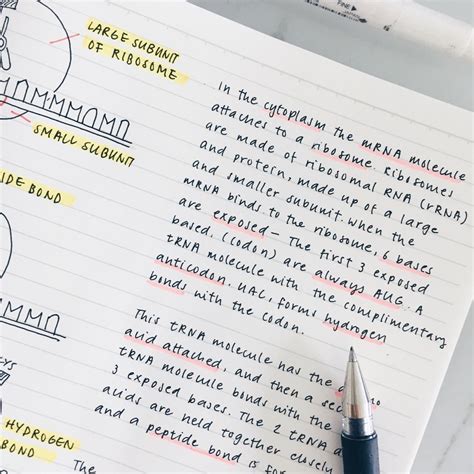 FINE
LARGE SUBUNIT
OF RIBOSOME
SMALL SUBUNIT
IDE BOND
HYDROGEN
BOND
In the cytoplasm the mRNA molecule
attaches to a ribosome. Ribosomes
are made of ribosomal RNA (rRNA)
and protein, made up of a large
and smaller subunit. When the
mRNA binds to the ribosome, 6 bases
are exposed - The first 3 exposed
bases, (codon) are always AUG. A
tRNA molecule with the complimentary
anticodon. UAC, forms hydrogen
bonds with the codon.
This tRNA molecule has the
acid attached, and then a
tRNA molecule bonds with the
3 exposed bases. The 2 tRNA
acids are held together closely
and a peptide bond is